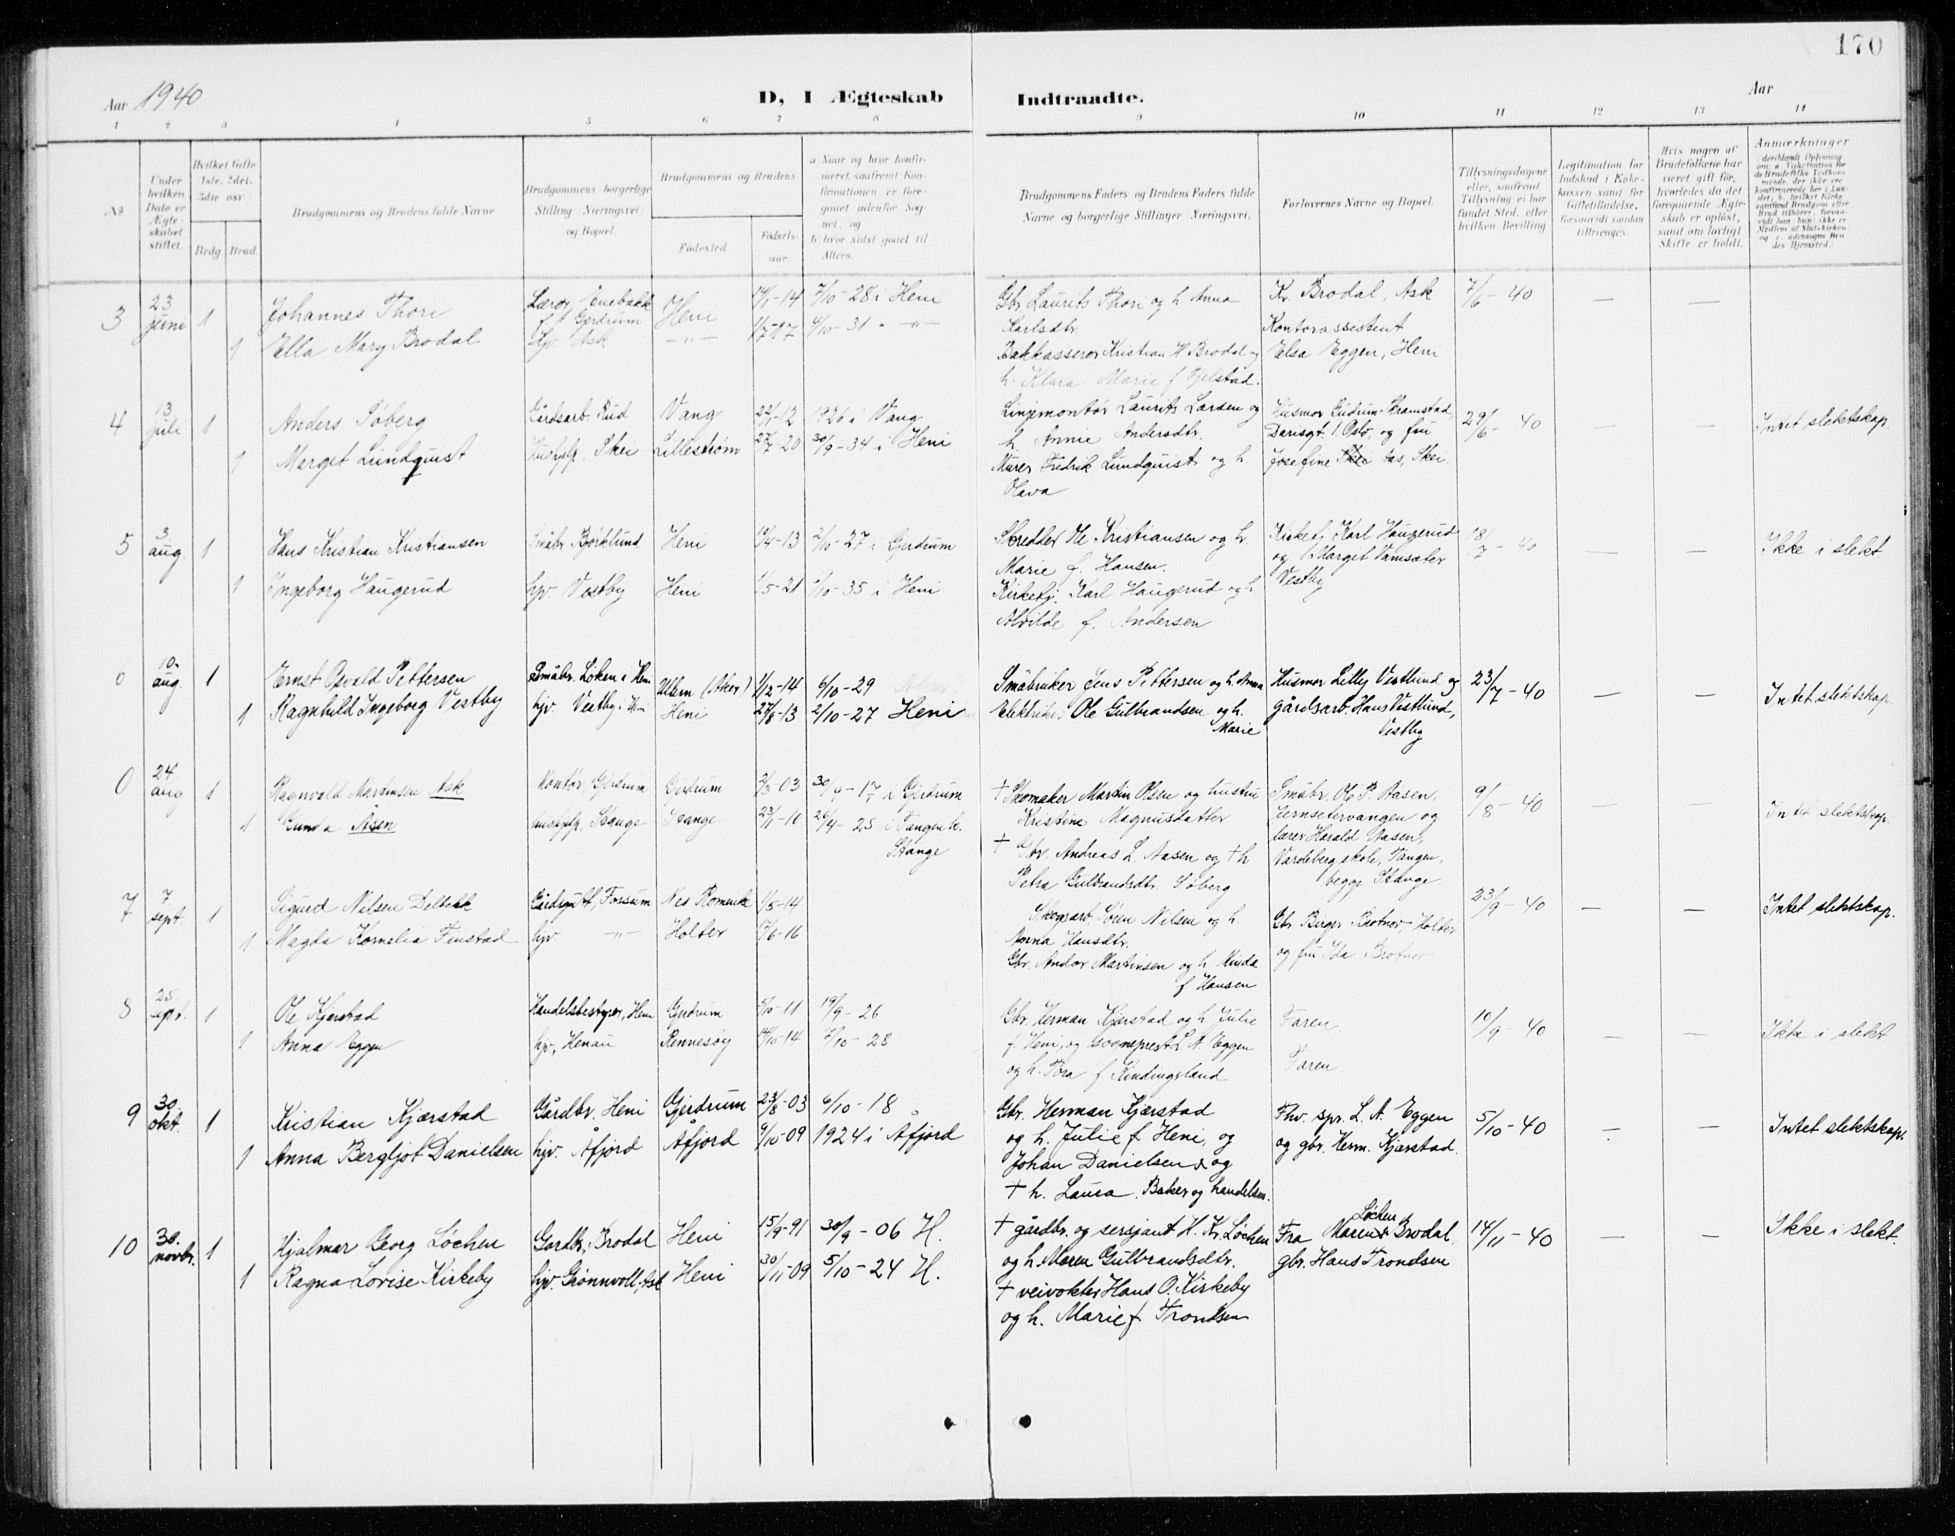 170
Aar 1940
D, I Ægteskab Indtraadte.
Aar
1 2 3 4 5 6 7 8 9 10 11 12 13 14
No
Under hvilken Dato er Ægteskabet stiftet.
Hvilket Gifte 1ste, 2det, 3die osv.
Brdg. Brud.
Brudgommens og Brudens fulde Navne
Brudgommens borgerlige Stilling Næringsvei og Bopæl.
Brudgommens og Brudens
Fødested. Fødselsaar
a Naar og hvor konfirmeret, saafremt Konfirmationen er foregaaet udenfor Sognet, og
b hvor sidst gaaet til Alters.
Brudgommens Faders og Brudens Faders fulde Navne og borgerlige Stillinger Næringsvei.
Forlovernes Navne og Bopæl.
Tillysningsdagene eller, saafremt Tillysning ei har fundet Sted, efter hvilken Bevilling
Legitimation for Indskud i Enkekassen samt for Giftetilladelse, forsaavidt saadan tiltrænges.
Hvis nogen af Brudefolkene har været gift før, hvorledes da det foregaaende Ægteskab er opløst, samt om lovligt Skifte er holdt.
Anmærkninger
3 23 juni 1 Johannes Thori Lærer Enebakk f. Gjerdrum Heni 14/1-14 7/10-28 i Heni
Gbr Laurits Thori og h. Anna Karlsdtr. Kr. Brodal, Ask 7/6-40 — —
1 Ella Mary Brodal hjv. Ask —"— 1/7-17 4/10-31 " —"—
Kontorassistent
Bakkasserer Kristian H Brodal og h. Klara Marie f. Gjelstad. Elsa Eggen, Heni
4 13 juli 1 Anders Søberg Gårdsarb. Rud Vang 22/1-12 1926 i Vang
Linjemontør Laurits Larsen og h. Annie Andersdtr. Husmor Gudrun Skramstad Darisgt. 1. Oslo, og fru 29/6-40 — — Intet slektskap
1 Marget Lundquist Hushjelp. Skei Lillestrøm 27/7-20 30/9-34 i Heni
Murer Fredrik Lundquist og h. Olava Josefine Aas, Skei.
5 3 aug. 1 Hans Kristian Kristiansen Småbr. Bjørklund Heni 19/4-13 2/10-27 i Gjerdrum
Skredder Ole Kristiansen og h. Marie f. Hansen. Kirketj. Karl Haugerud og Marget Vamsæter Vestby 18/7-40 — — Ikke i slekt
1 Ingeborg Haugerud hjv. Vestby Heni 1/5-21 6/10-35 i Heni
Kirketj. Karl Haugerud og h. Alvilde f. Andersen
6 10 aug. 1 Ernst Osvald Pettersen Småbr. Løken i Heni Ullern (Aker) 1/12-14 6/10-29 Aker
Småbruker Jens Pettersen og h. Anna Husmor Lilly Vestlund og 23/7-40 — — Intet slektskap.
1 Ragnhild Ingeborg Vestby hjv. Vestby i Heni Heni 27/8-13 2/10-27 Heni
Elektriker Ole Gulbrandsen og h. Marie gårdsarb. Hans Vestlund, Vestby
0 24 aug 1 Ragnvald Martinsen Ask Kontor, Gjerdrum Gjerdrum 2/3 03 30/9-17 i Gjerdrum
† Skomaker Martin Olsen og hustru Kristine Magnusdatter Småbr. Ole P. Aasen, 9/8-40 — — Intet slektskap.
1 Gunda Åsen Hushjlp. Stange Stange 23/1-11 26/4-25 i Tangen k. Stange
† Gbr. Andreas L. Aasen og † h Petra Gulbrandsdtr. Søberg Jernseter vangen og lærer Harald Aasen, Vardeberg skole, Tangen, begge Stange
7 7 sept 1 Sigurd Nilsen Delbekk Gårdsgutt, Forssum Nes Romerike 1/5-14
Skogsarb Søren Nilsen og h Anna Hansdtr. Gbr Birger Brotnor Holter og fru Ida Brotnor 23/9-40 — — Intet slektskap.
1 Magda Kornelia Finstad hjv —"— Holter 17/6-16
Gbr. Andor Martinsen og h. Minda f Hansen
8 25. sept. 1 Ole Kjærstad Handelsbestyrer, Heni Gjerdrum 5/10-11 19/9-26
Gbr. Herman Kjærstad og h Julie f. Heni, og Sogneprest L A. Eggen og h. Tora f Kindingsland Faren. 10/9-40 — — Ikke i slekt
1 Anna Eggen hjv, Henau Rennesøy 14/10-14 7/10-28 Faren.
9 30. okt. 1 Kristian Kjærstad Gårdbr. Heni Gjerdrum 23/8-03 6/10-18
Gbr. Herman Kjærstad og h. Julie f. Heni, og Fhv. spr. L. A. Eggen og gbr. Herm. Kjærstad. 5/10-40 — — Intet slektskap.
1 Anna Bergljot Danielsen hjv. Åfjord Åfjord 9/10-09 1924 i Åfjord
Johan Danielsen og † h. Laura. Baker og handelsm.
10 30. novbr. 1 Hjalmar Georg Løchen Gardbr, Brodal Heni 15/9-91 30/9-06 H.
† gårdbr. og sersjant H. Kr. Løchen og h. Maren Gulbrandsdtr. Fra Maren Løchen Brodal, gbr. Hans Trondsen 14/11-40 — — Ikke i slekt.
1 Ragna Lovise Kirkeby hjv. Grønnvoll, Ask Heni 30/11-09 5/10-24 H.
† veivokter Hans O. Kirkeby og h. Marie f Trondsen